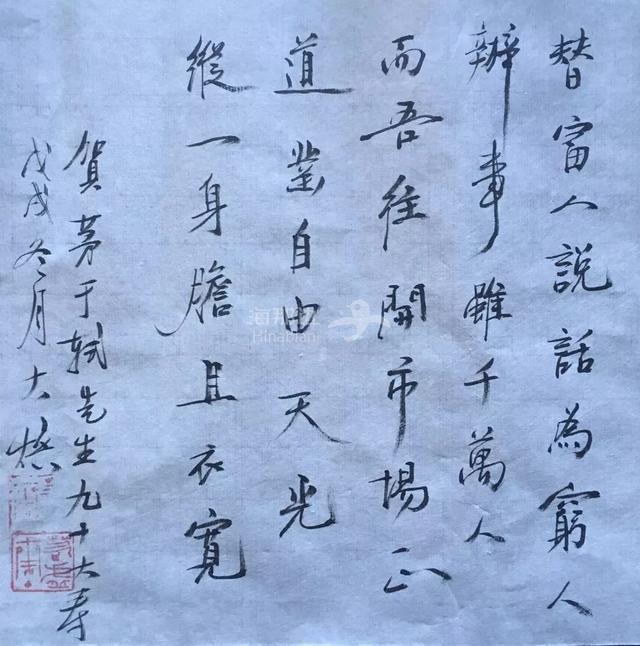 替富人說話為窮人
辦事雖千萬人
而吾往開市場正
道業自由天光
縱一身膽且衣寬
賀茅于軾先生九十大壽
戊戌冬月大燃
海那边
Hinabian